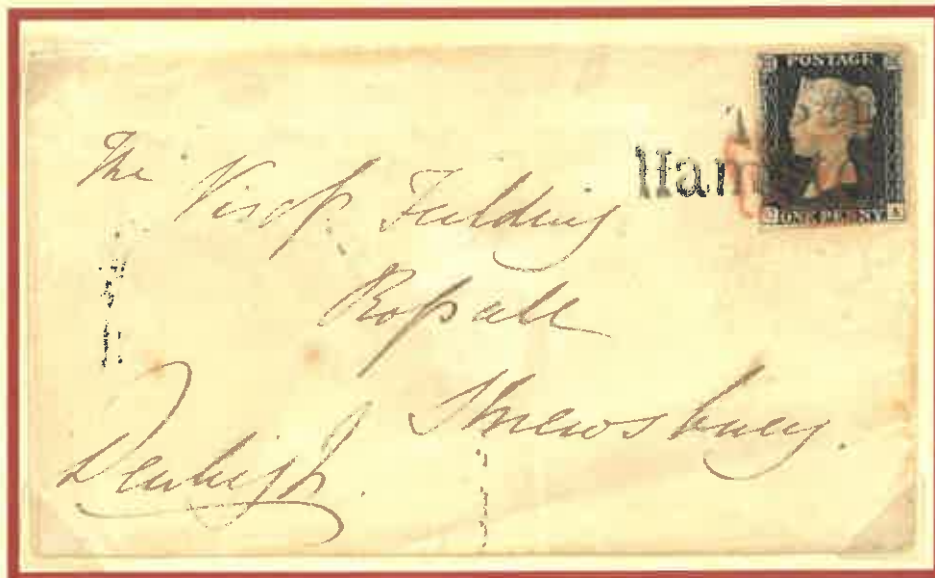 POSTAGE
Ham
ONE PENNY
The
Visc Feilding
Rossall
Shrewsbury.
Denbigh.